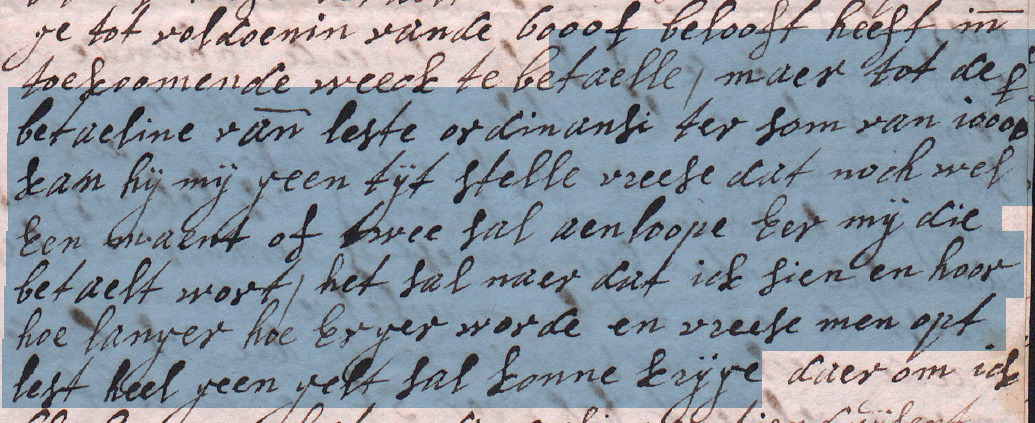 ge tot voldoenin vande 6000f belooft heeft in
toekoomende weeck te betaelle, maer tot de
betaeline van leste ordinansi ter som van 10000f
kan hij mij geen tijt stelle vreese dat noch wel
Een maent of twee sal aenloope Eer mij die
betaelt wort, het sal naer dat ick sien en hoor
hoe langer hoe Erger worde en vreese men opt
lest heel geen gelt sal konne krijge daer om ick